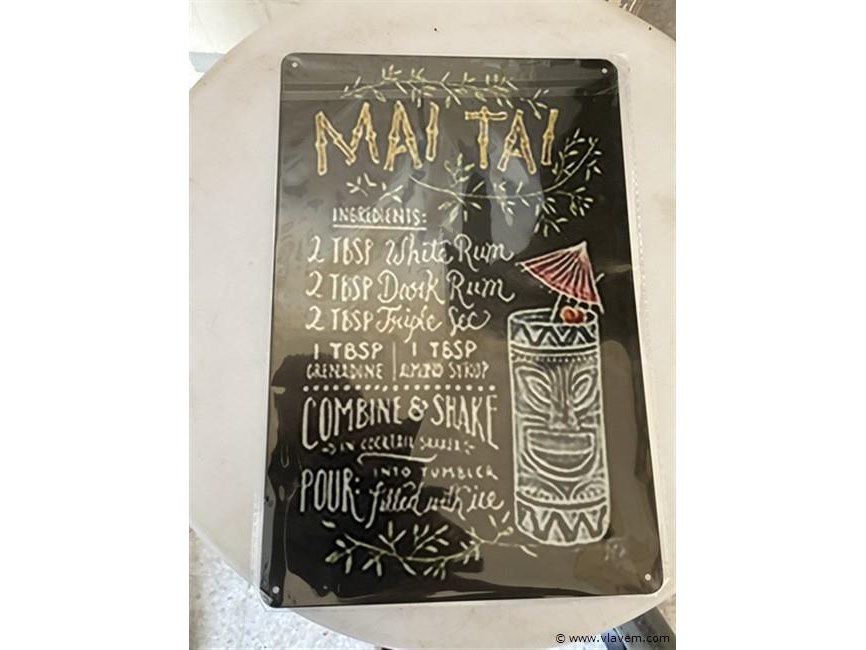 MAI TAI
INGREDIENTS:
2 TBSP White Rum
2 TBSP Dark Rum
2 TBSP Triple Sec
1 TBSP | 1 TBSP
GRENADINE | SYRUP
COMBINE & SHAKE
IN COCKTAIL SHAKER
POUR: INTO TUMBLER
filled with ice
© www.vlavem.com